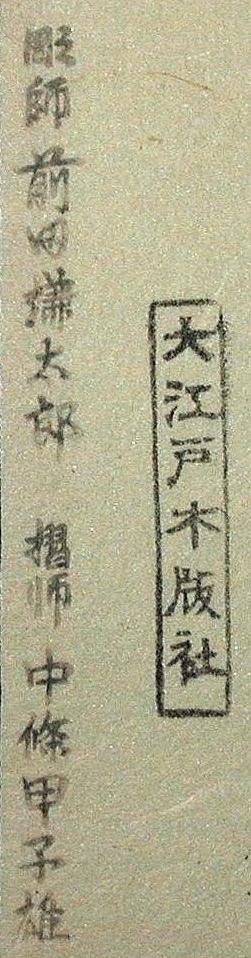 大江戸木版社
彫師 前田謙太郎 摺師 中條甲子雄